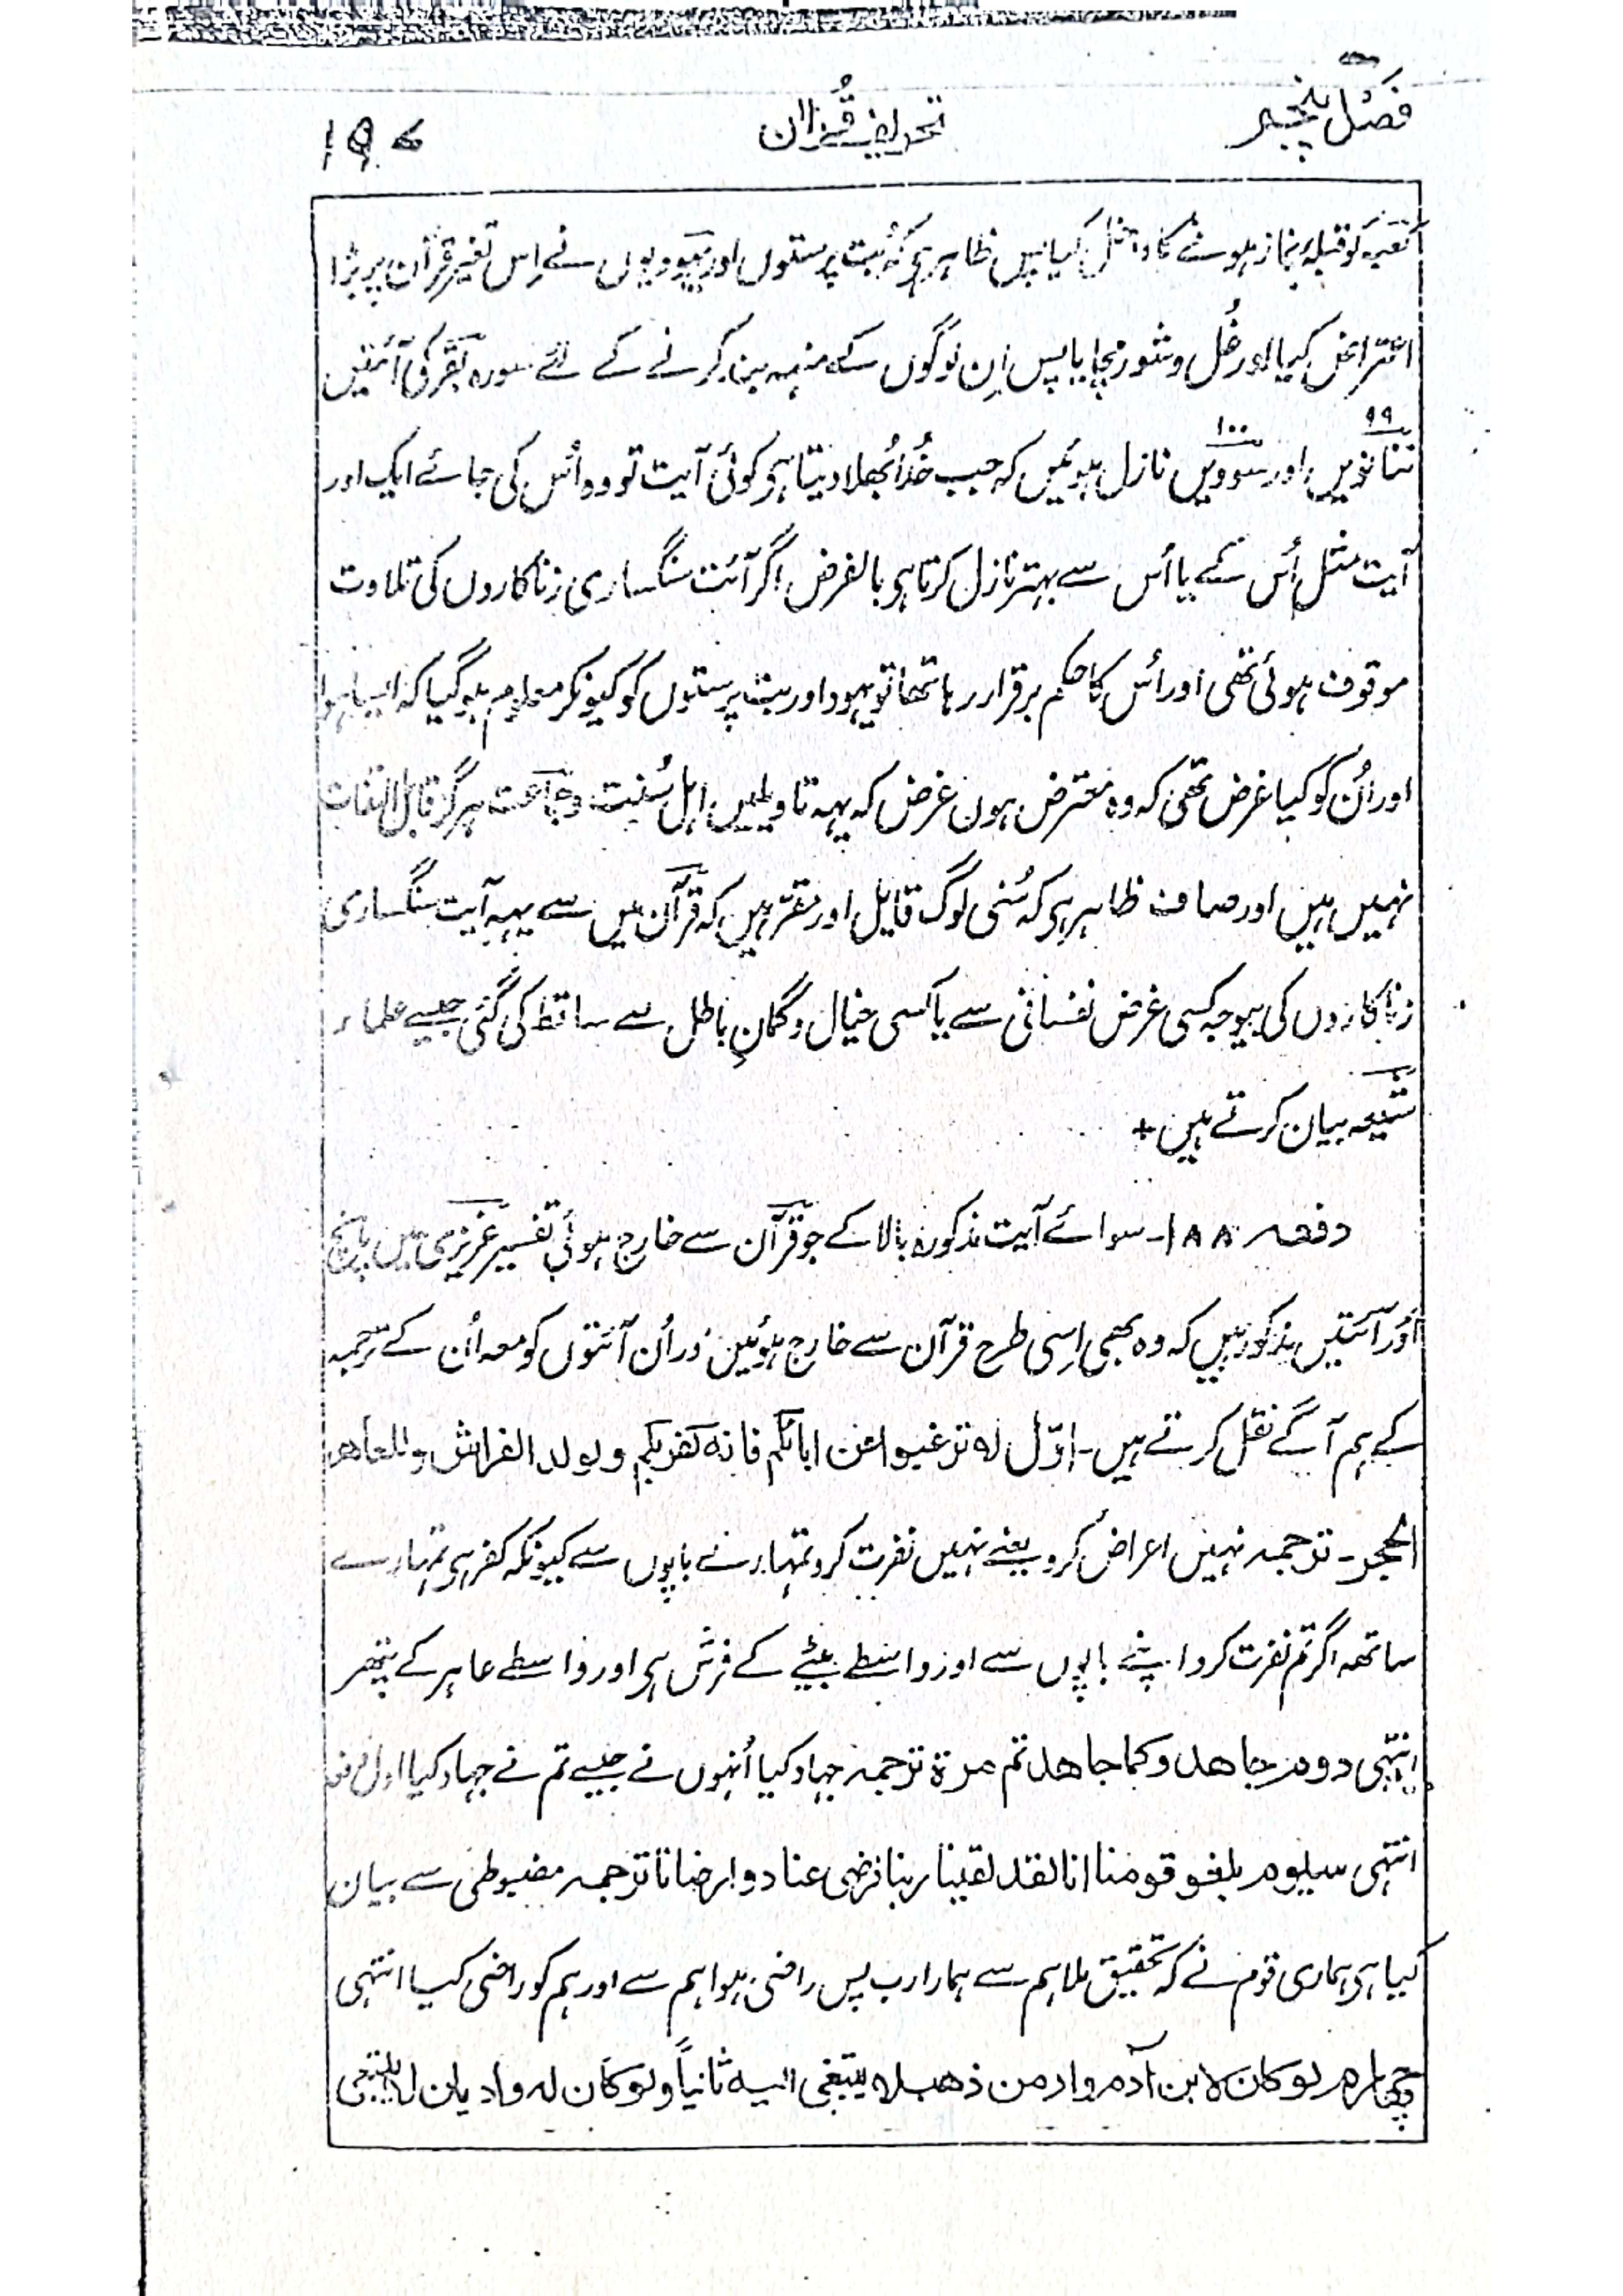 فصل پنجم
تحریف قرآن
۱۹۷
کعبہ کو قبلہ نماز ہونے کا داخل کیا پس ظاہر ہی کہ بت پرستوں اور یہودیوں نے اس تغیر قرآن پر بڑا
اعتراض کیا اور غُل و شور مچایا پس اِن لوگوں کے منہہ بند کرنے کے لئے سورہ بقر کی آئتیں
۹۹ ۱۰۰
ننانویں اور سوویں نازل ہوئیں کہ جب خُدا بُھلا دیتا ہی کوئی آیت تو وہ اُس کی جائے ایک اور
آیت مثل اُس کے یا اُس سے بہتر نازل کرتا ہی بالفرض اگر آئت سنگساری زناکاروں کی تلاوت
موقوف ہوئی تھی اور اُس کا حکم برقرار رہا تھا تو یہود اور بت پرستوں کو کیونکر معلوم ہو گیا کہ ایسا ہوا
اور اُن کو کیا غرض تھی کہ وہ معترض ہون غرض کہ یہہ تاویلیں اہل سُنت و جماعت ہرگز قابل التفات
نہیں ہیں اور صاف ظاہر ہی کہ سُنی لوگ قایل اور مقر ہیں کہ قرآن میں سے یہہ آیت سنگساری
زناکاروں کی بوجہ کسی غرض نفسانی سے یا کسی خیال و گمانِ باطل سے ساقط کی گئی جیسے علماء
شیعہ بیان کرتے ہیں +
دفعہ ۱۸۸۔ سوائے آیت مذکورہ بالا کے جو قرآن سے خارج ہوئی تفسیر عزیزی میں پانچ
اَوْر آئتیں مذکور ہیں کہ وہ بھی اِسی طرح قرآن سے خارج ہوئیں اور اُن آئتوں کو معہ اُن کے ترجمہ
کے ہم آگے نقل کرتے ہیں۔ اوّل لا ترغبوا عن ابائکم فانہ کفر بکم و لولد الفراش وللعاھر
الحجر۔ ترجمہ نہیں اعراض کرو یعنے نہیں نفرت کرو تمہارے باپوں سے کیونکہ کفر ہی تمہارے
ساتھہ اگر تم نفرت کرو اپنے باپوں سے اور واسطے بیٹے کے فرش ہی اور واسطے عاہر کے پتھر
انتہی دوم جاھدوکما جاھدتم مرۃ ترجمہ جہاد کیا اُنہوں نے جیسے تم نے جہاد کیا اول
انتہی سیوم بلغو قومنا انا لقد لقینا ربنا فرضی عنا و ارضانا ترجمہ مضبوطی سے بیان
کیا ہی ہماری قوم نے کہ تحقیق ملا ہم سے ہمارا رب پس راضی ہوا ہم سے اور ہم کو راضی کیا انتہی
چہارم لو کان لابن آدم واد من ذھب لا یبتغی الیہ ثانیاً و لو کان لہ وادیان لا یبتغی